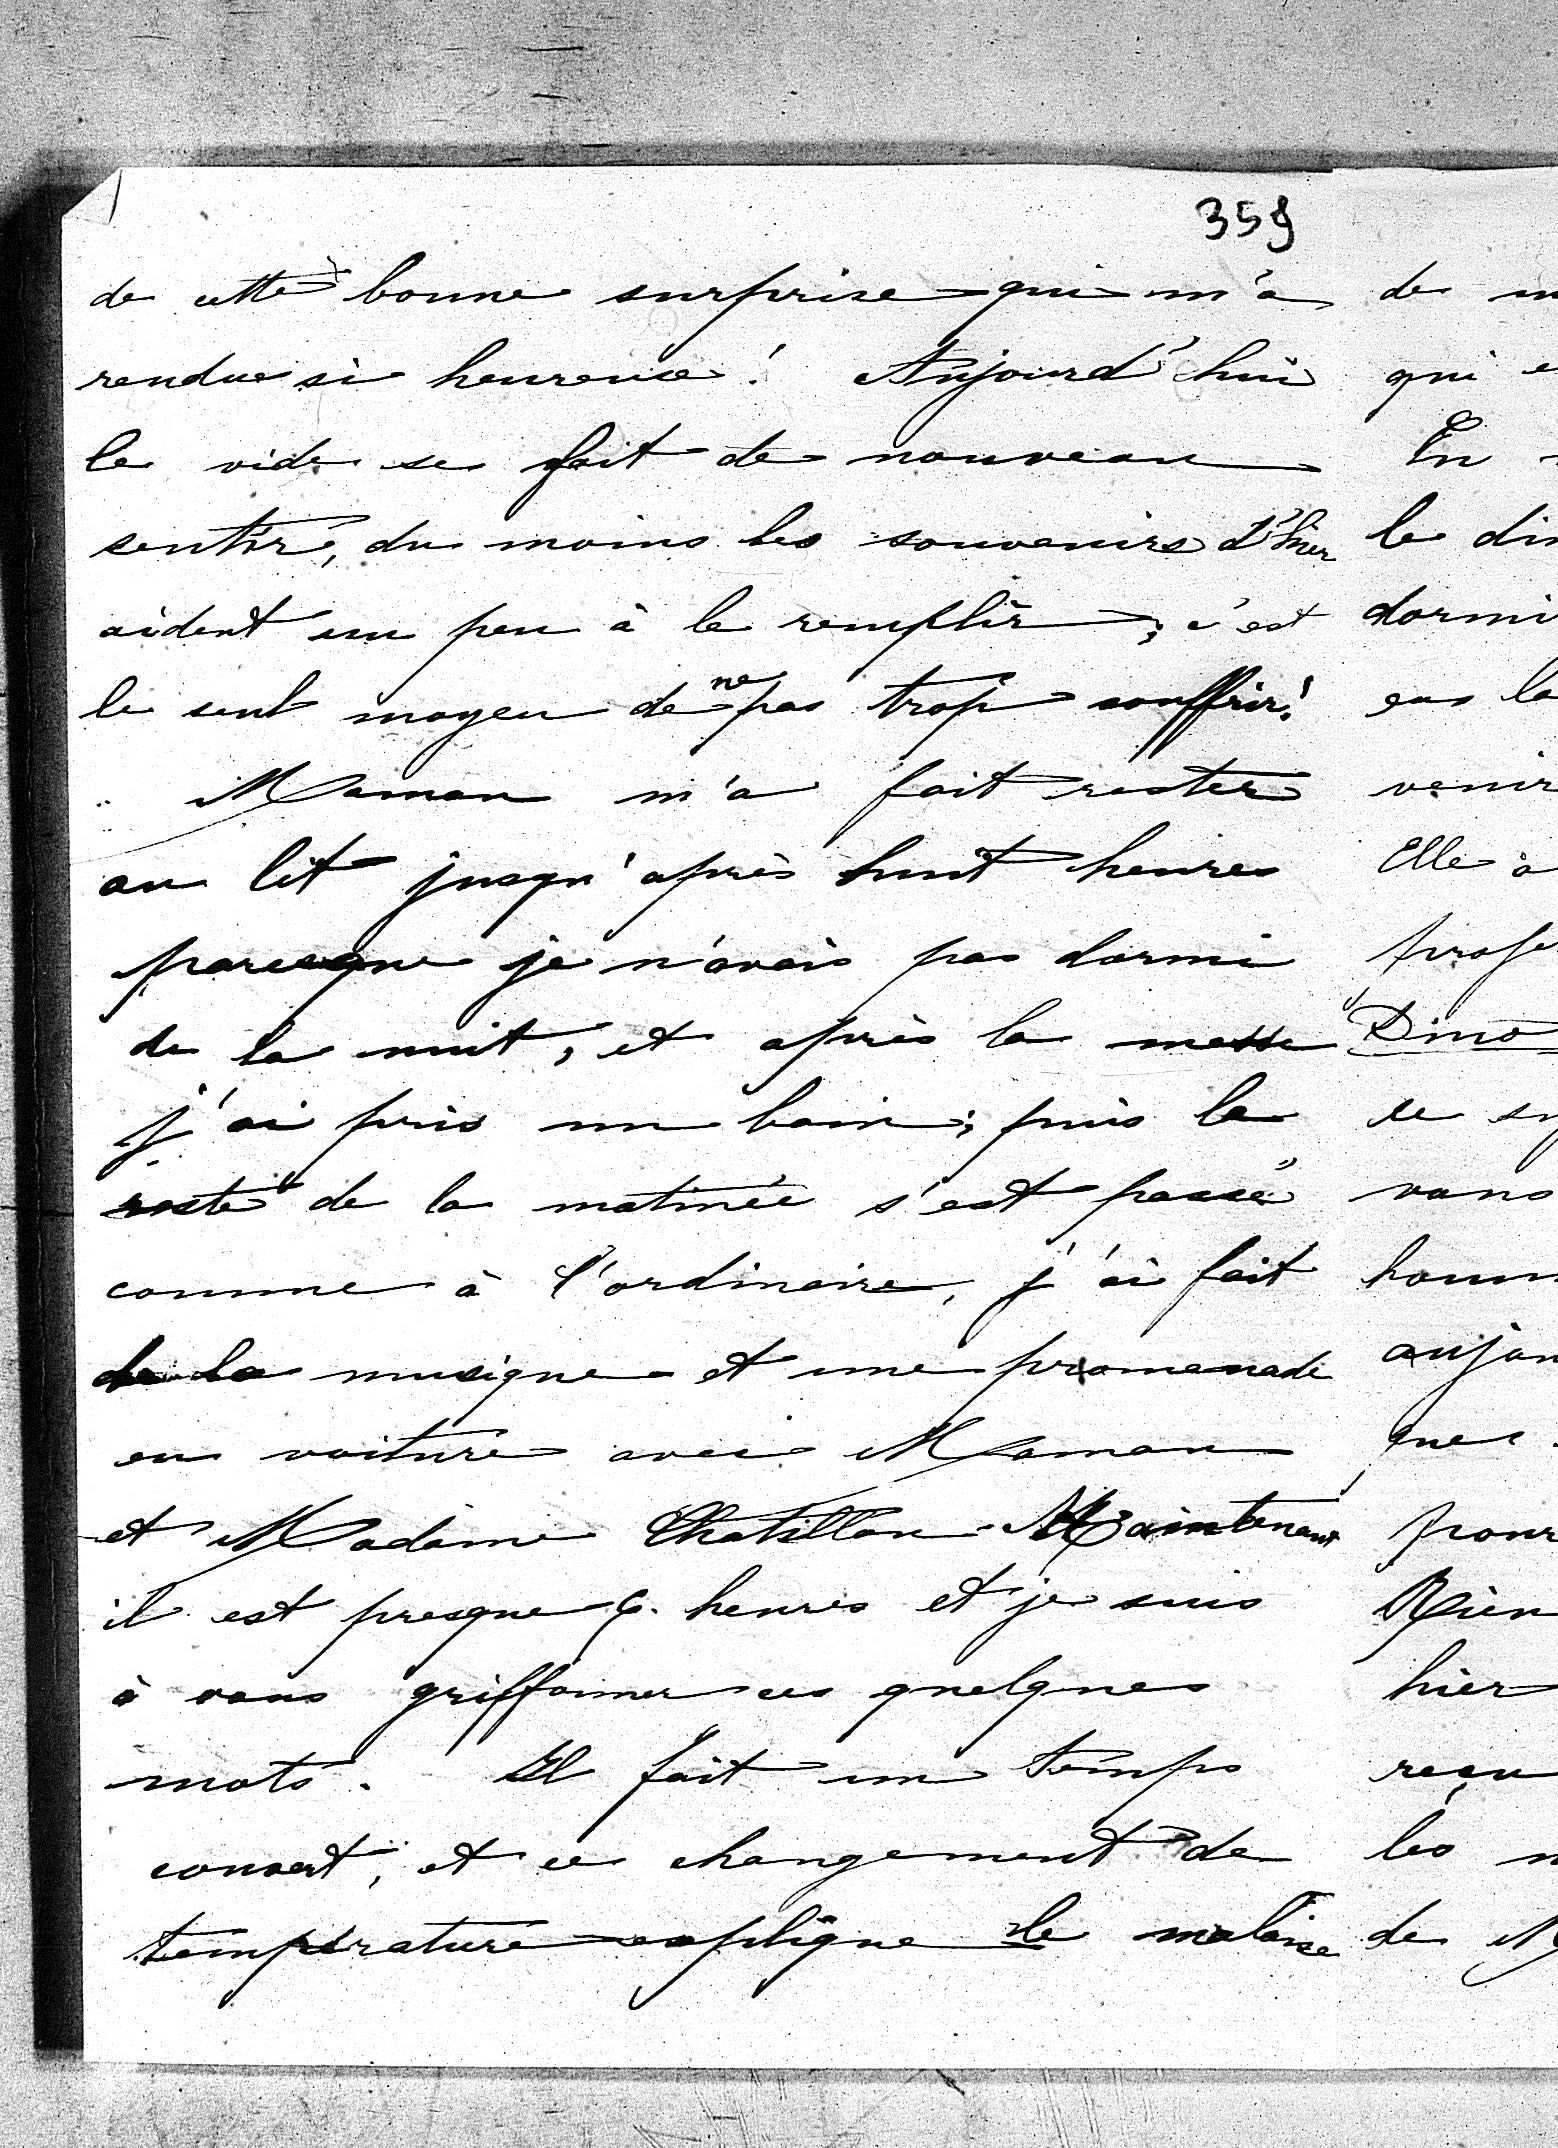 359
de cette bonne surprise qui m'a
rendue si heureuse! Aujourd'hui
le vide se fait de nouveau
sentir, du moins les souvenirs d'hier
aident un peu à le remplir; c'est
le seul moyen de ne pas trop souffrir!
Maman m'a fait rester
au lit jusqu'après huit heures
parceque je n'avais pas dormi
de la nuit, et après la messe
j'ai pris un bain; puis le
reste de la matinée s'est passé
comme à l'ordinaire, j'ai fait
de la musique et une promenade
en voiture avec Maman
et Madame Chatillon. Maintenant
il est presque 6. heures et je suis
à vous griffonner ces quelques
mots. Il fait un temps
couvert, et ce changement de
température explique le malaise
de
qui
En
le
dormi
eus la
venir
Elle a
Dino
se
vous
aujour
pour
Rien
hier
reçu
les
de